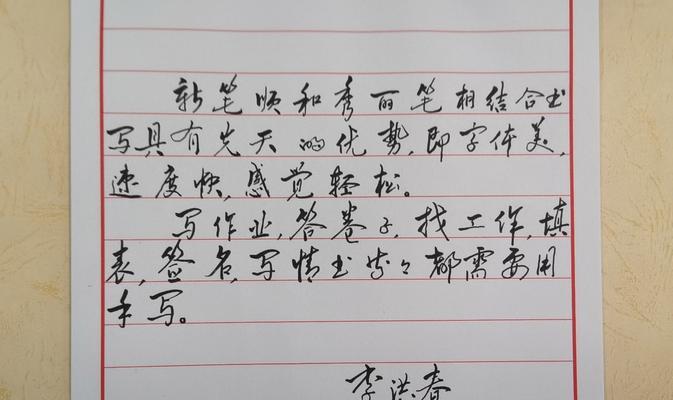 新笔顺和秀丽笔相结合书
写具有先天的优势,即字体美,
速度快,感觉轻松。
写作业,答卷子,找工作,填
表,签名,写情书等々都需要用
手写。
李洪春